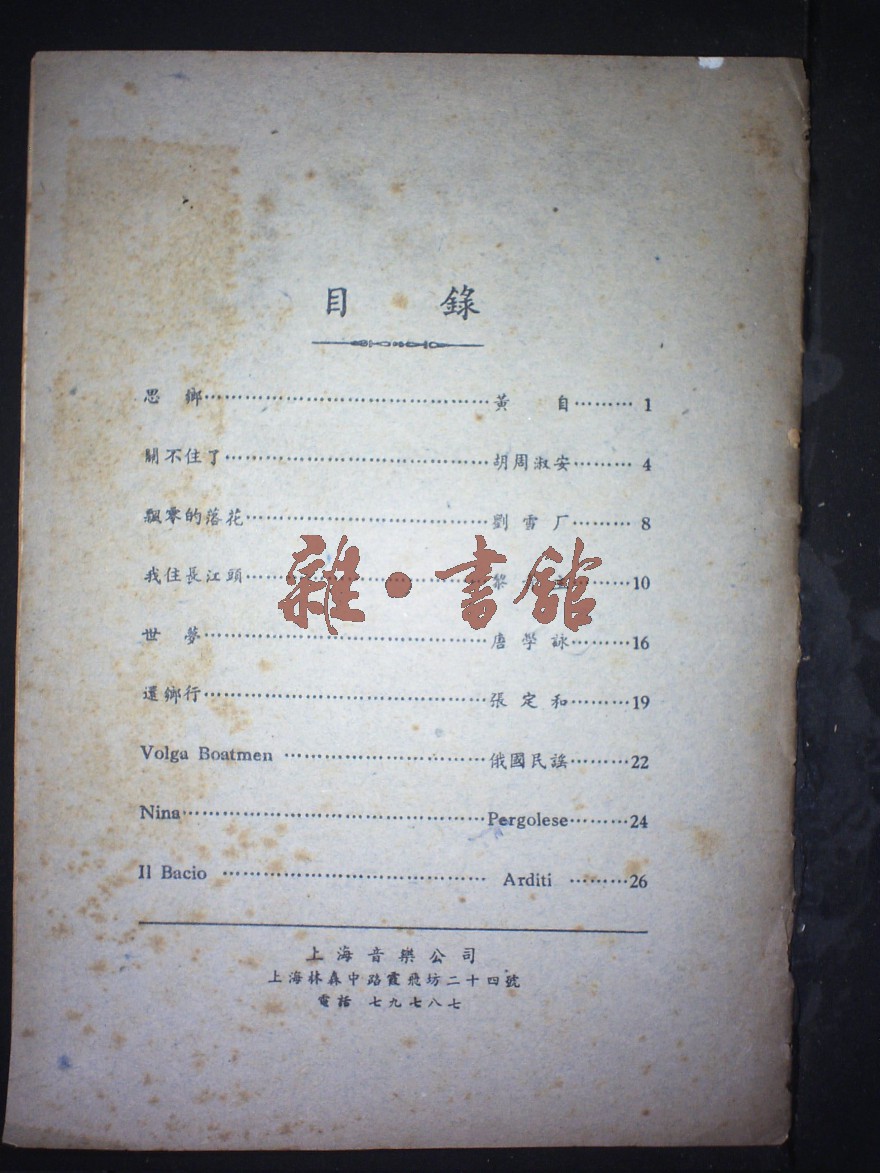 目 錄
思 鄉………黃 自………1
關不住了………胡周淑安………4
飄零的落花………劉雪厂………8
我住長江頭………黎………10
世 夢………唐學詠………16
還鄉行………張定和………19
Volga Boatmen………俄國民謠………22
Nina………Pergolese………24
Il Bacio………Arditi………26
上海音樂公司
上海林森中路霞飛坊二十四號
電話 七九七八七
雜·書館